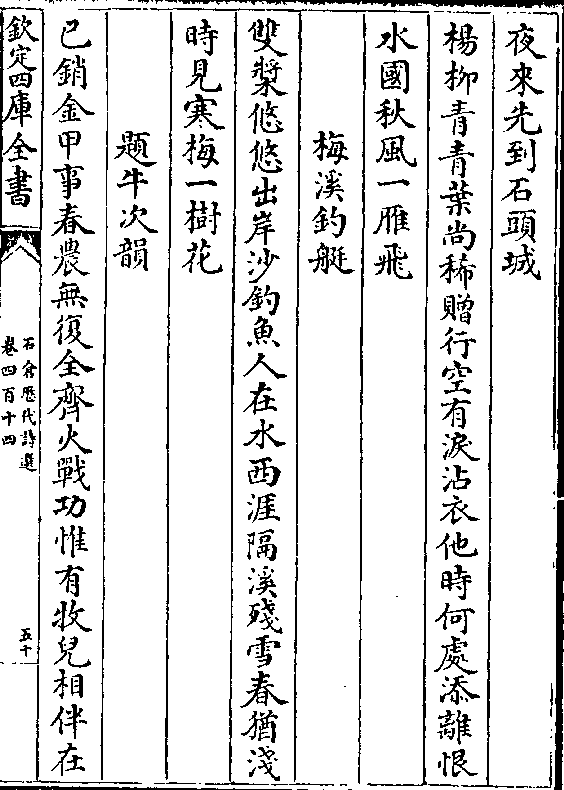 夜來先到石頭城
楊柳青青葉尚稀贈行空有淚沾衣他時何處添離恨
水國秋風一雁飛
梅溪釣艇
雙槳悠悠出岸沙釣魚人在水西涯隔溪殘雪春猶淺
時見寒梅一樹花
題牛次韻
已銷金甲事春農無復全齊火戰功惟有牧兒相伴在
欽定四庫全書
石倉歷代詩選
卷四百十四
五十